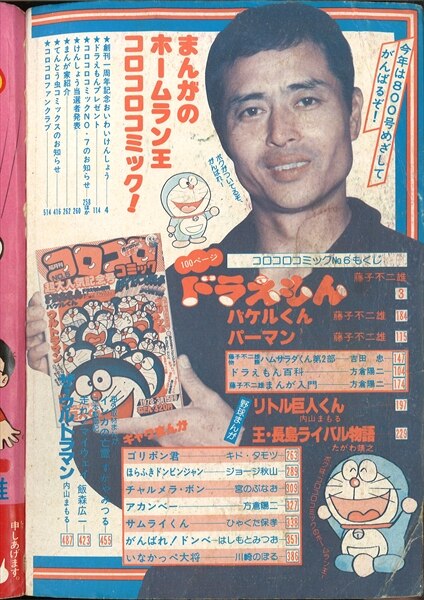 今年は８００号めざして
がんばるぞ！
まんがの
ホームラン王
コロコロコミック！
★創刊一周年記念おおいわいけんしょう 4
★ドラえもんプレゼント 114
★コロコロコミックNO.7のお知らせ 258ほか
★けんしょう当選者発表 260
★まんが家紹介 262
★てんとう虫コミックスのお知らせ 416
★コロコロファンクラブ 514
ボクがついてるぞ、
がんばれ！
コロコロコミックNo6もくじ
100ページ
ドラえもん 藤子不二雄 3
バケルくん 藤子不二雄 184
パーマン 藤子不二雄 115
藤子不二雄物語 ハムサラダくん第2部 吉田忠 147
ドラえもん百科 方倉陽二 104
藤子不二雄まんが入門 方倉陽二 174
野球まんが
リトル巨人くん 内山まもる 197
王・長島ライバル物語 たがわ靖之 229
コロコロ
コミック
超大人気記念
ザ・ウルトラマン
内山まもる 487
飯森広一 423
455
ギャグまんが
ゴリポン君 キド・タモツ 263
ほらふきドンビンジャン ジョージ秋山 289
チャルメラ・ポン 宮のぶなお 303
アカンベー 方倉陽二 327
サムライくん ひゃくた保孝 338
がんばれ！ドンベ はしもとみつお 351
いなかっぺ大将 川崎のぼる 386
申しあげます。